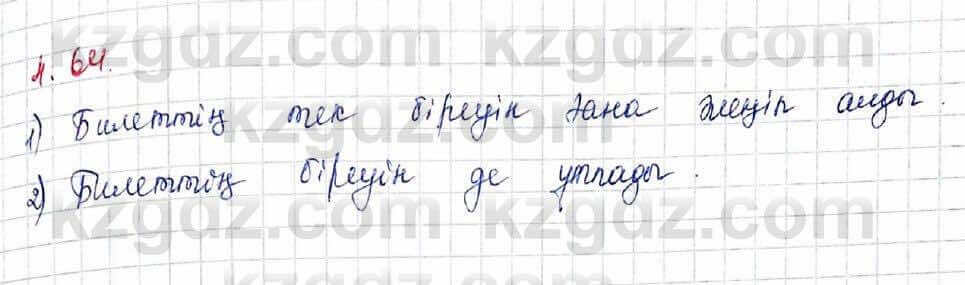 kzgdz.com kzgdz.com
4.64.
1) Билеттің тек біреуін ғана жеңіп алды.
2) Билеттің біреуін де ұтпады.
kzgdz.com kzgdz.com
kzgdz.com kzgdz.com